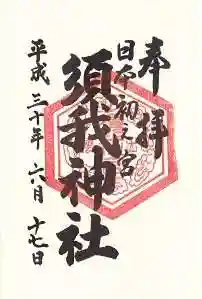 奉拝
日本初之宮
須我神社
平成三十年六月十七日